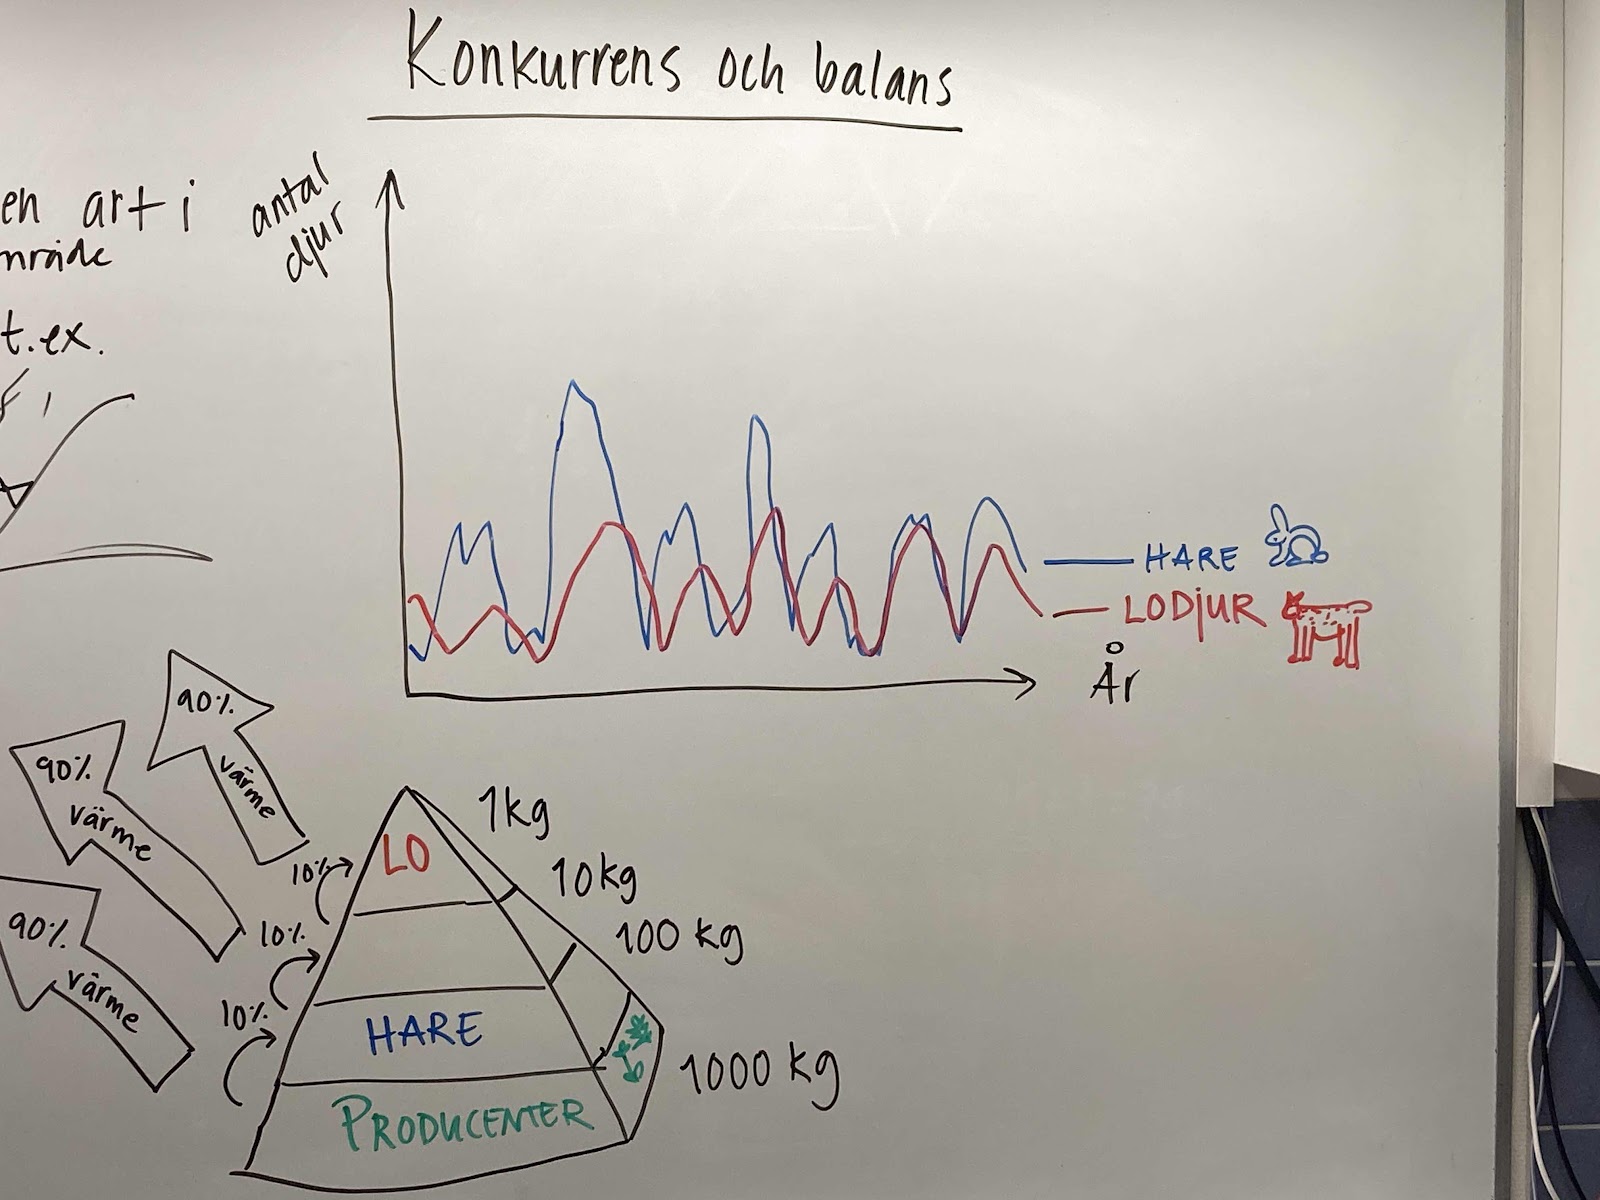 Konkurrens och balans
en art i
område
t.ex.
antal
djur
HARE
LODJUR
År
90%
värme
90%
värme
90%
värme
10%
10%
10%
LO
HARE
PRODUCENTER
1kg
10kg
100 kg
1000 kg